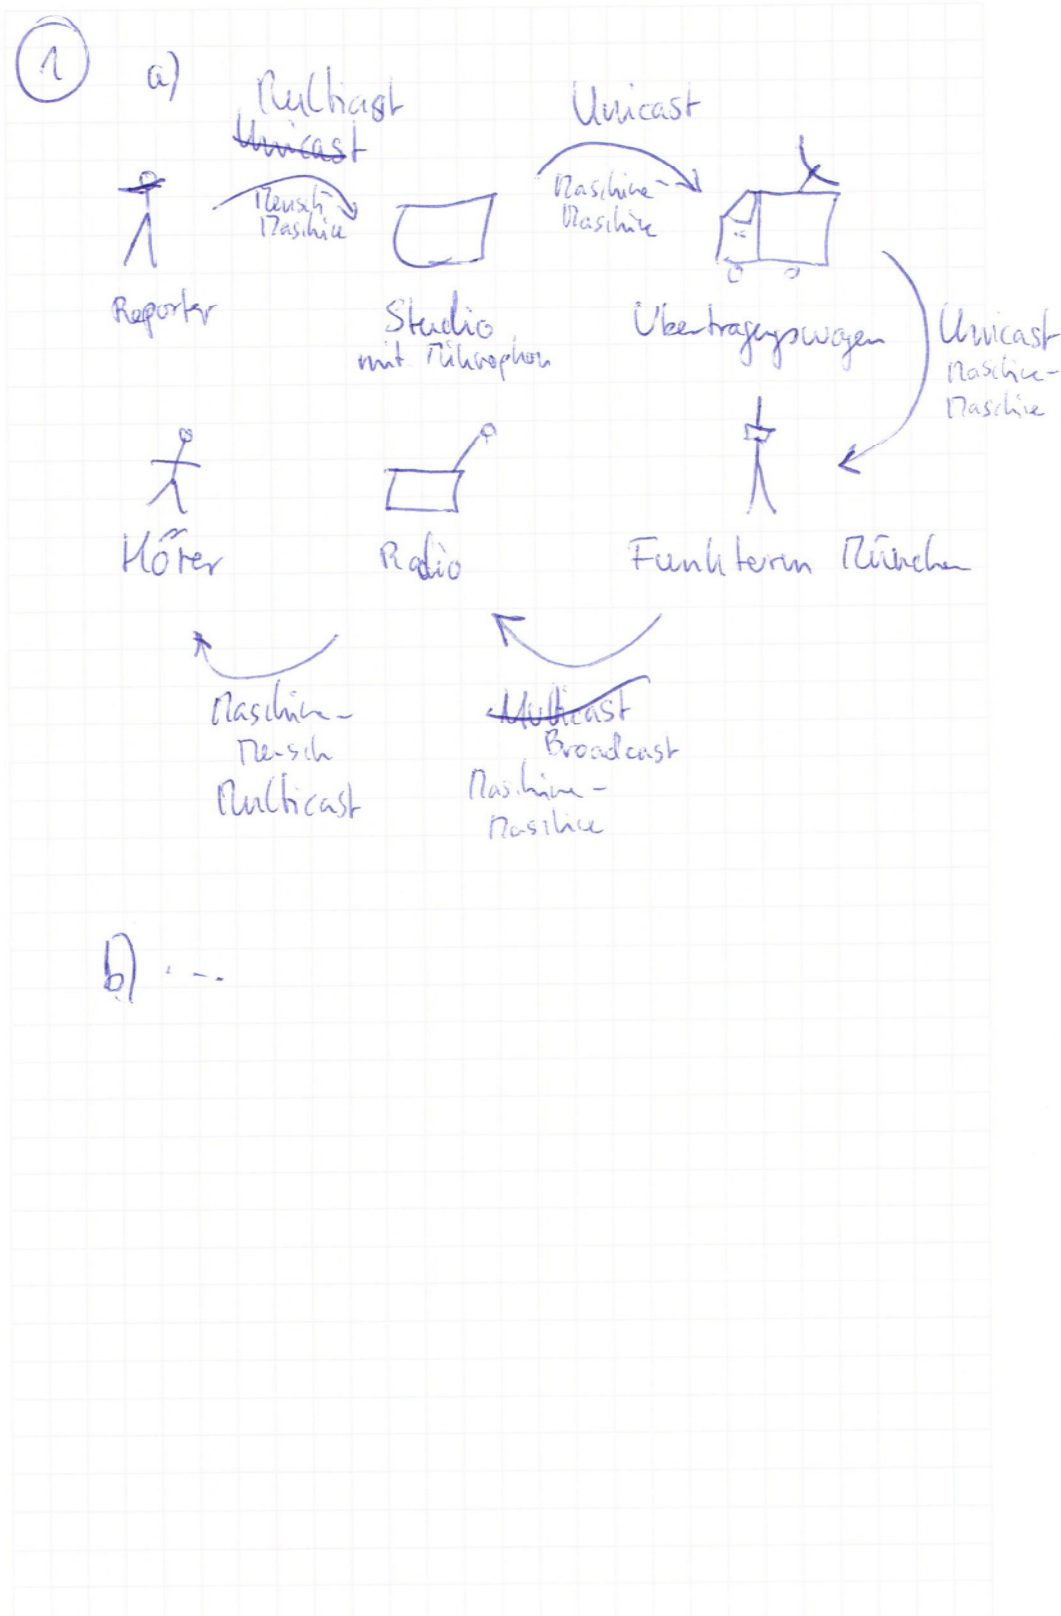 1
a)
Multicast
Unicast
Unicast
Mensch-
Maschine
Maschine-
Maschine
Reporter
Studio
mit Mikrophon
Übertragungswagen
Unicast
Maschine-
Maschine
Hörer
Radio
Funkturm München
Maschine-
Mensch
Multicast
Multicast
Broadcast
Maschine-
Maschine
b) ...